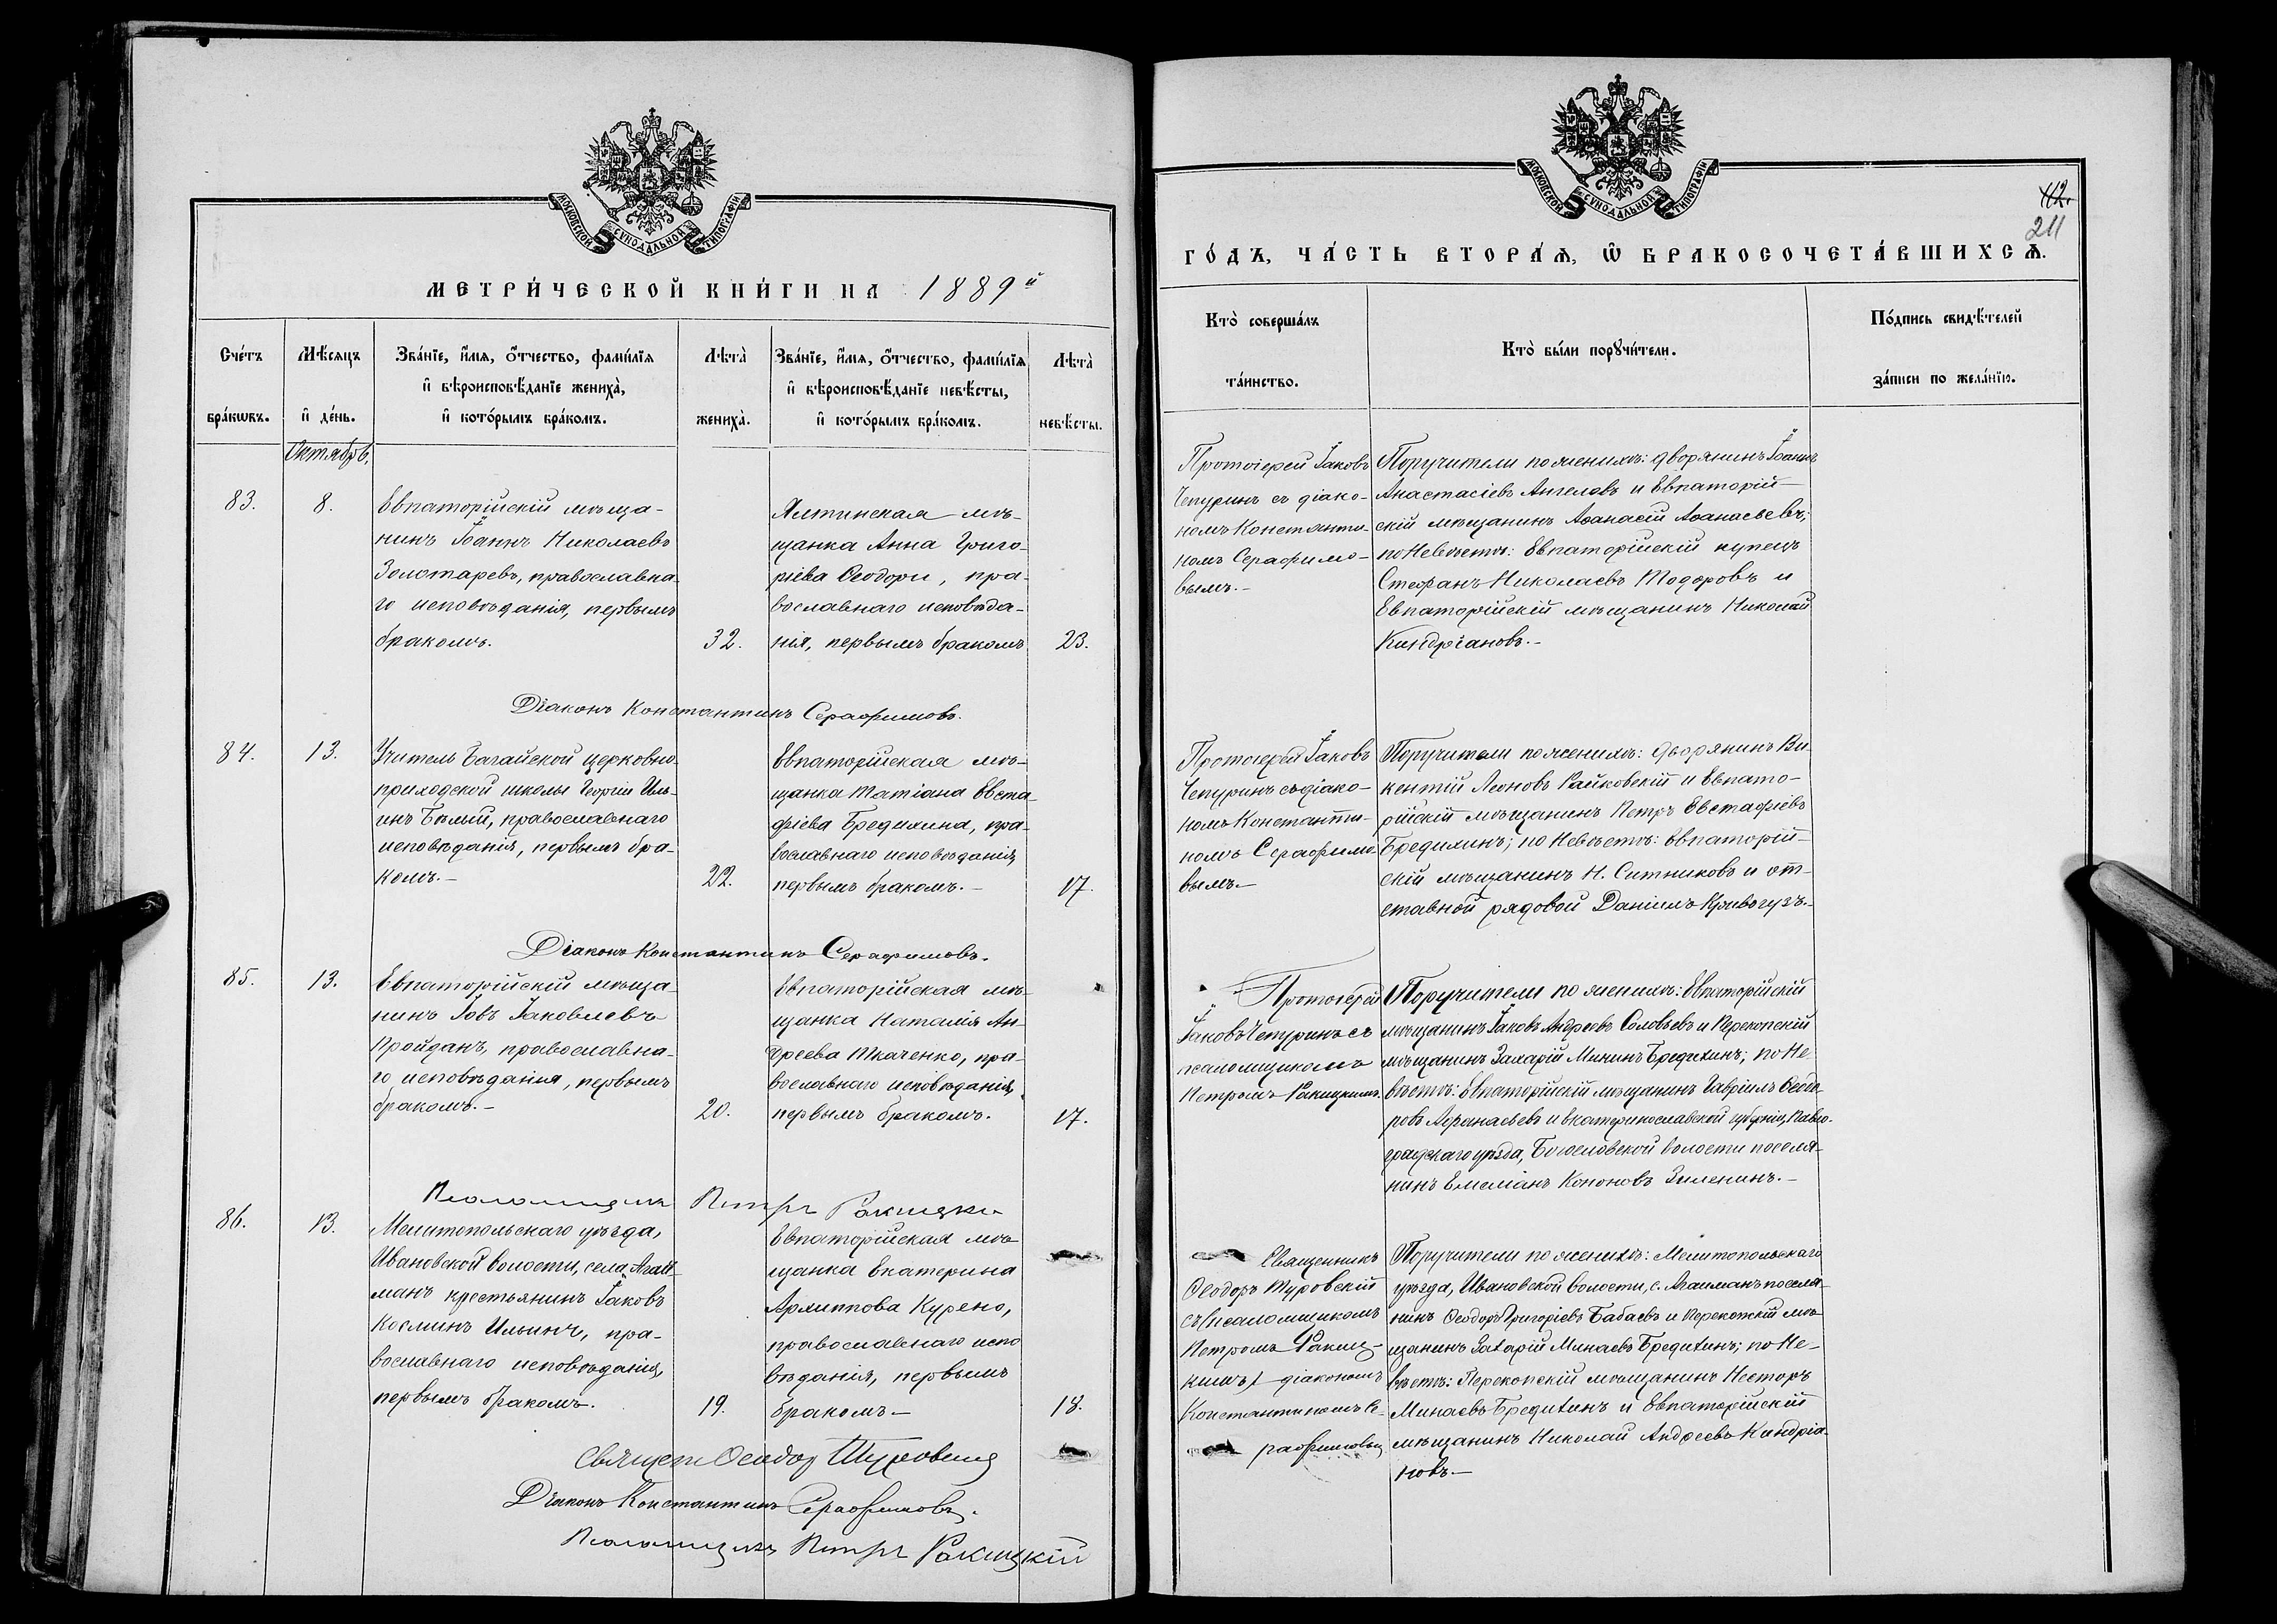 МОСКОВСКОЙ СѴНОДАЛЬНОЙ ТИПОГРАФІИ
МЕТРИ́ЧЕСКОЙ КНИ́ГИ НА 1889й
Сче́тъ бра́кѡвъ.
Мѣ́сяцъ и҆ де́нь.
Зва́нїе, и҆́мя, ѻ҆́тчество, фами́лїя
и҆ вѣроисповѣ́данїе жениха̀,
и҆ кото́рымъ бра́комъ.
Лѣта̀ жениха̀.
Зва́нїе, и҆́мя, ѻ҆́тчество, фами́лїя
и҆ вѣроисповѣ́данїе невѣ́сты,
и҆ кото́рымъ бра́комъ.
Лѣта̀ невѣ́сты.
Октябрь.
83.
8.
Евпаторійскій мѣща-
нинъ Іоаннъ Николаевъ
Золотаревъ, православна-
го исповѣданія, первымъ
бракомъ.
32.
Ялтинская мѣ-
щанка Анна Григо-
ріева Ѳеодори, пра-
вославнаго исповѣда-
нія, первымъ бракомъ
23.
Діаконъ Константинъ Серафимовъ.
84.
13.
Учитель Багайской церковно-
приходской школы Георгій Иль-
инъ Бѣлый, православнаго
исповѣданія, первымъ бра-
комъ.-
22.
Евпаторійская мѣ-
щанка Татіана Евста-
фіева Бредихина, пра-
вославнаго исповѣданія,
первымъ бракомъ.-
17.
Діаконъ Константинъ Серафимовъ.
85.
13.
Евпаторійскій мѣща-
нинъ Іовъ Іаковлевъ
Пройданъ, православна-
го исповѣданія, первымъ
бракомъ.-
20.
Евпаторійская мѣ-
щанка Наталія Ан-
дреева Ткаченко, пра-
вославнаго исповѣданія,
первымъ бракомъ.
17.
Псаломщикъ Петръ Ракицкій
86.
13.
Мелитопольскаго уѣзда,
Ивановской волости, села Агай-
манъ крестьянинъ Іаковъ
Косминъ Ильинъ, пра-
вославнаго исповѣданія,
первымъ бракомъ.
19.
Евпаторійская мѣ-
щанка Екатерина
Архиппова Курено,
православнаго испо
вѣданія, первымъ
бракомъ-
18.
Священ Ѳеодор Туровскій
Діаконъ Константинъ Серафимовъ.
Псаломщикъ Петръ Ракицкій
МОСКОВСКОЙ СѴНОДАЛЬНОЙ ТИПОГРАФІИ
112.
211
ГО́ДЪ, ЧА́СТЬ ВТОРА́Я, Ѡ҆ БРАКОСОЧЕТА́ВШИХСЯ.
Кто̀ соверша́лъ
та́инство.
Кто̀ бы́ли порꙋчи́тели.
По́дпись свидѣ́телей
за́писи по жела́нїю.
Протоіерей Іаковъ
Чепуринъ съ діако-
номъ Константи-
номъ Серафимо-
вымъ.-
Поручители по женихѣ: дворянинъ Іоаннъ
Анастасіевъ Ангеловъ и Евпаторій-
скій мѣщанинъ Аѳанасій Аѳанасьевъ;
по Невѣстѣ: Евпаторійскій купецъ
Стефанъ Николаевъ Тодоровъ и
Евпаторійскій мѣщанинъ Николай
Киндріановъ.-
Протоіерей Іаковъ
Чепуринъ съ діако-
номъ Константи-
номъ Серафимо-
вымъ.-
Поручители по женихѣ: дворянинъ Ви-
кентій Леоновъ Райковскій и Евпато-
рійскій мѣщанинъ Петръ Евстафіевъ
Бредихинъ; по Невѣстѣ: Евпаторій-
скій мѣщанинъ Н. Ситниковъ и от-
ставной рядовой Даніилъ Кривогузъ.-
Протоіерей
Іаковъ Чепуринъ съ
псаломщикомъ
Петромъ Ракицкимъ.
Поручители по женихѣ: Евпаторійскій
мѣщанинъ Іаковъ Андреевъ Соловьевъ и Перекопскій
мѣщанинъ Захарій Мининъ Бредихинъ; по Не-
вѣстѣ: Евпаторійскій мѣщанинъ Гавріилъ Ѳеодо-
ровъ Аѳанасьевъ и Екатеринославской губерніи, Павло-
градскаго уѣзда, Богословской волости поселя-
нинъ Емеліанъ Кононовъ Зиленинъ.-
Священникъ
Ѳеодоръ Туровскій
съ псаломщикомъ
Петромъ Ракиц-
кимъ и діакономъ
Константиномъ Се-
рафимовы
Поручители по женихѣ: Мелитопольскаго
уѣзда, Ивановской волости, с. Агайманъ поселя-
нинъ Ѳеодоръ Григоріевъ Бабаевъ и Перекопскій мѣ-
щанинъ Захарій Минаевъ Бредихинъ; по Не-
вѣстѣ: Перекопскій мѣщанинъ Несторъ
Минаевъ Бредихинъ и Евпаторійскій
мѣщанинъ Николай Андреевъ Киндріа-
новъ.-